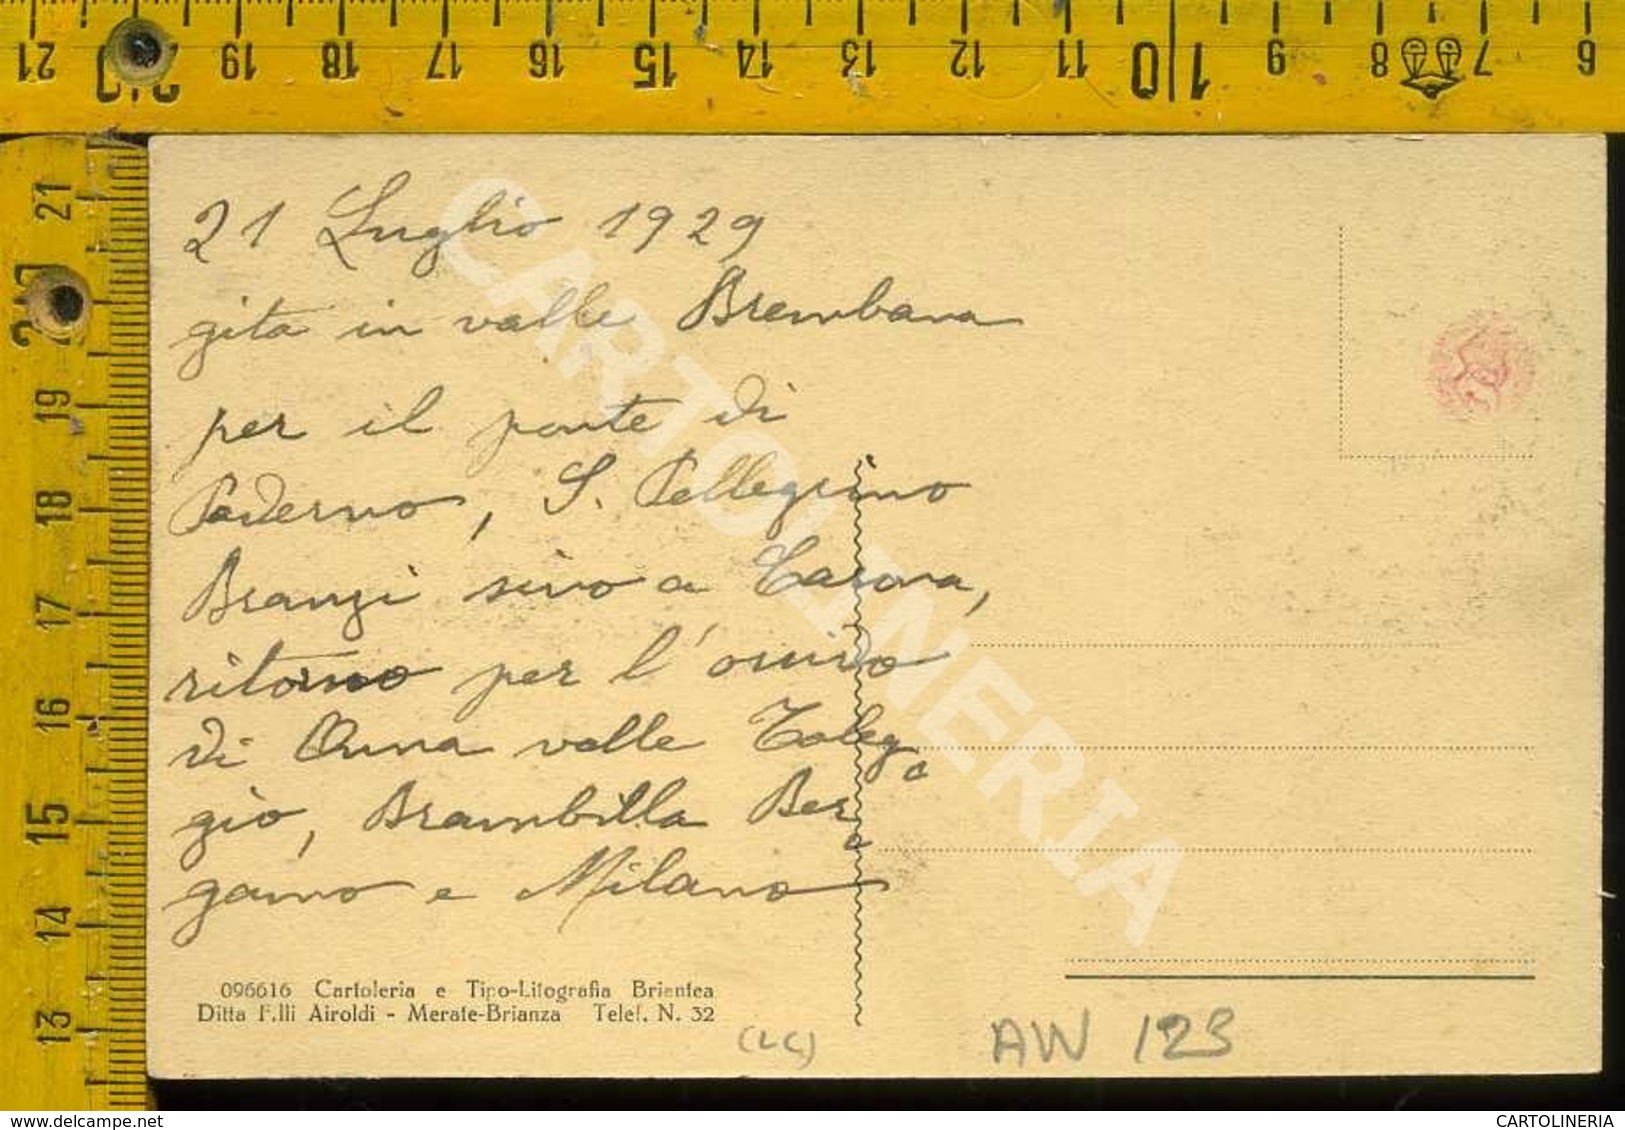 21 20 19 18 17 16 15 14 13 12 11 10 9 8 7 6
21 20 19 18 17 16 15 14 13
21 Luglio 1929
gita in valle Brembana
per il ponte di
Paderno, S. Pellegrino
Branzi sino a Carona,
ritorno per l'orrido
di Onna valle Taleg
gio, Brambilla Ber
gamo e Milano
096616 Cartoleria e Tipo-Litografia Briantea
Ditta F.lli Airoldi - Merate-Brianza Telef. N. 32
(LC)
AW 123
CARTOLINERIA
CARTOLINERIA